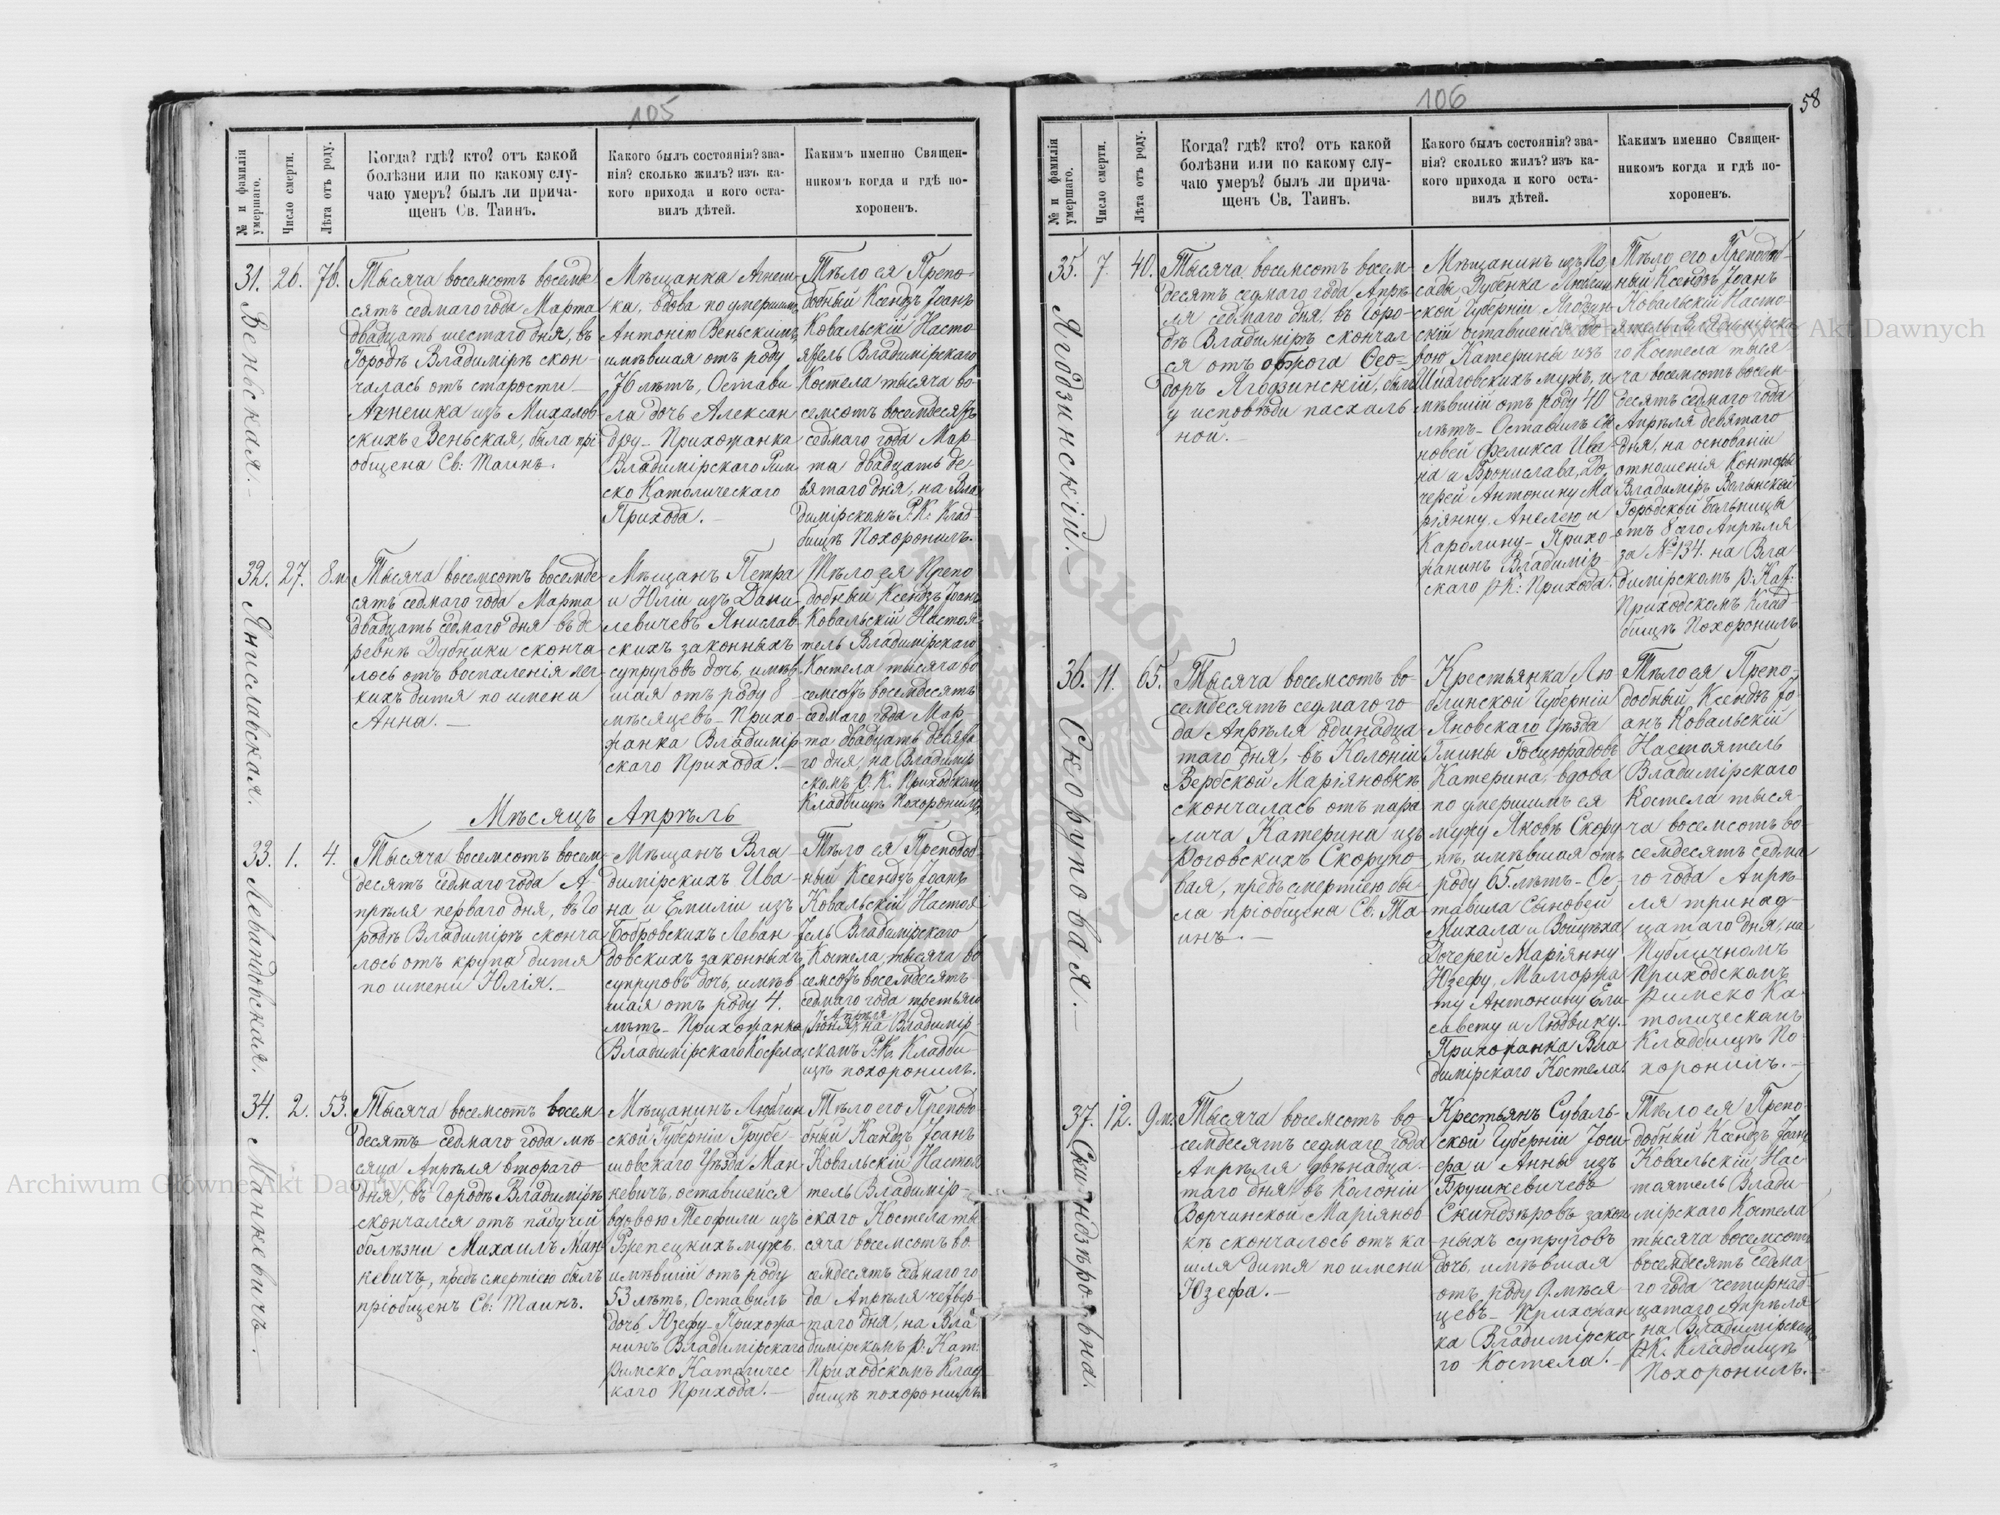 105
№ и фамилія умершаго.
Число смерти.
Лѣта отъ роду.
Когда? гдѣ? кто? отъ какой
болѣзни или по какому слу-
чаю умеръ? былъ ли прича-
щенъ Св. Таинъ.
Какого былъ состоянія? зва-
нія? сколько жилъ? изъ ка-
кого прихода и кого оста-
вилъ дѣтей.
Какимъ именно Священ-
никомъ когда и гдѣ по-
хороненъ.
31. Веньская.
26.
76.
Тысяча восемсотъ восемде
сятъ седмаго года Марта
двадцать шестаго дня, въ
Городѣ Владимірѣ скон-
чалась отъ старости
Агнешка изъ Михалов
скихъ Веньская, была прі
общена Св: Таинъ.
Мѣщанка Агнеш-
ка, вдова по умершимъ
Антонію Веньскимъ,
имѣвшая отъ роду
76 лѣтъ, Остави
ла дочь Алексан
дру – Прихожанка
Владимірскаго Рим
ско Католическаго
Прихода. –
Тѣло ея Препо-
добный Ксендзъ Іоанъ
Ковальскій Насто-
ятель Владимірскаго
Костела тысяча во-
семсотъ восемдесятъ
седмаго года Мар-
та двадцать де
вятаго дня, на Вла
димірскомъ Р.К: Клад-
бищѣ Похоронилъ.
32. Яниславская.
27.
8 м.
Тысяча восемсотъ восемде
сятъ седмаго года Марта
двадцать седмаго дня въ де
ревнѣ Дубники сконча
лось отъ воспаленія лег
кихъ дитя по имени
Анна. –
Мѣщанъ Петра
и Юліи изъ Дани-
левичевъ Янислав
скихъ законныхъ
супруговъ дочь, имѣв
шая отъ роду 8
мѣсяцевъ – Прихо-
жанка Владимір-
скаго Прихода. –
Тѣло ея Препо
добный Ксендзъ Іоанъ
Ковальскій Настоя-
тель Владимірскаго
Костела, тысяча во
семсотъ восемдесятъ
седмаго года Мар-
та двадцать девята
го дня, на Владимір
скомъ Р. К. Приходскомъ
Кладбищѣ Похоронилъ.
Мѣсяцъ Апрѣль
33. Левандовская.
1.
4.
Тысяча восемсотъ восем-
десятъ седмаго года А-
прѣля перваго дня, въ Го
родѣ Владимірѣ сконча
лось отъ крупа дитя
по имени Юлія. –
Мѣщанъ Вла
димірскихъ Ива-
на и Емиліи изъ
Бобровскихъ Леван-
довскихъ законныхъ
супруговъ дочь, имѣв
шая отъ роду 4.
лѣтъ – Прихожанка
Владимірскаго Костела
Тѣло ея Преподоб
ный Ксендзъ Іоанъ
Ковальскій Настоя
тель Владимірскаго
Костела, тысяча во
семсотъ восемдесятъ
седмаго года третьяго
Апрѣля
на Владимір-
скомъ Р.К. Кладби-
щѣ похоронилъ.
34. Манкевичъ.
2.
53.
Тысяча восемсотъ восем
десятъ седмаго года мѣ-
сяца Апрѣля втораго
дня, въ Городѣ Владимірѣ
скончался отъ падучей
болѣзни Михаилъ Ман-
кевичъ, предъ смертіею былъ
пріобщенъ Св: Таинъ.
Мѣщанинъ Люблин
ской Губерніи Грубе-
шовскаго Уѣзда Ман-
кевичъ, оставшейся
вдовою Теофили изъ
мужъ,
имѣвшій отъ роду
53 лѣтъ, Оставилъ
дочь Юзефу – Прихожа-
нинъ Владимірскаго
Римско Католичес
каго Прихода. –
Тѣло его Преподо-
бный Ксендзъ Іоанъ
Ковальскій Настоя
тель Владимір-
скаго Костела ты
сяча восемсотъ во-
семдесятъ седмаго го
да Апрѣля четвер-
таго дня, на Вла
димірскомъ Р. Кат:
Приходскомъ Клад
бищѣ похоронилъ
106
58
№ и фамилія умершаго.
Число смерти.
Лѣта отъ роду.
Когда? гдѣ? кто? отъ какой
болѣзни или по какому слу-
чаю умеръ? былъ ли прича-
щенъ Св. Таинъ.
Какого былъ состоянія? зва-
нія? сколько жилъ? изъ ка-
кого прихода и кого оста-
вилъ дѣтей.
Какимъ именно Священ-
никомъ когда и гдѣ по-
хороненъ.
35. Ягодзинскій.
7.
40.
Тысяча восемсотъ восем-
десятъ седмаго года Апрѣ
ля седмаго дня, въ Горо-
дѣ Владимірѣ скончал
ся отъ Ѳео-
доръ Ягодзинскій, былъ
у исповѣди пасхаль
ной. –
Мѣщанинъ изъ По
сады Дубенка Люблин
ской Губерніи Ягодзин
скій оставшейся вдо-
вою Катерины изъ
мужъ, и
мѣвшій отъ роду 40
лѣтъ – Оставилъ Сы
новей Феликса Ива
на и Бронислава, До
черей Антонину Ма
ріянну, Анелю и
Каролину – Прихо
жанинъ Владимір
скаго Р. К: Прихода.
Тѣло его Преподоб
ный Ксендзъ Іоанъ
Ковальскій Насто-
ятель Владимірска
го Костела тыся
ча восемсотъ восем
десятъ седмаго года
Апрѣля девятаго
дня, на основаніи
отношенія Конторы
Владиміръ Волынской
Городской Больницы
отъ 8 сего Апрѣля
за № 134. на Вла
димірскомъ Р. Кат.
Приходскомъ Клад-
бищѣ Похоронилъ
36. Скорупова я. –
11.
65.
Тысяча восемсотъ во-
семдесятъ седмаго го
да Апрѣля одинадца
таго дня, въ Колоніи
Вербской Маріяновкѣ
скончалась отъ пара
лича Катерина изъ
Роговскихъ Скорупо-
вая, предъ смертіею бы-
ла пріобщена Св. Та-
инъ. –
Крестьянка Лю
блинской Губерніи
Яновскаго Уѣзда
Гмины Госцюрадовъ
Катерина, вдова
по умершимъ ея
мужу Яковѣ Скору-
пѣ, имѣвшая отъ
роду 65. лѣтъ – Ос-
тавила Сыновей
Михала и Войцѣха
Дочерей Маріянну
Юзефу, Малгоржа
ту Антонину Ели-
савету и Людвику. –
Прихожанка Вла
димірскаго Костела.
Тѣло ея Препо-
добный Ксендзъ Іо-
анъ Ковальскій
Настоятель
Владимірскаго
Костела тыся-
ча восемсотъ во-
семдесятъ седма
го года Апрѣ-
ля тринад-
цатаго дня, на
Публичномъ
Приходскомъ
Римско Ка-
толическомъ
Кладбищѣ По-
хоронилъ. –
37. Скиндзѣровъна.
12.
9 м.
Тысяча восемсотъ во-
семдесятъ седмаго года
Апрѣля двѣнадца-
таго дня, въ Колоніи
Ворчинской Маріянов-
кѣ скончалось отъ ка
шля дитя по имени
Юзефа. –
Крестьянъ Суваль-
ской Губерніи Іоси-
фа и Анны изъ
Брушкевичевъ
Скиндзѣровъ закон
ныхъ супруговъ
дочь, имѣвшая
отъ роду 9. мѣся
цевъ – Прихожан
ка Владимірска
го Костела. –
Тѣло ея Препо-
добный Ксендзъ Іоанъ
Ковальскій, Нас-
тоятель Влади-
мірскаго Костела
тысяча восемсотъ
восемдесятъ седма
го года четырнад
цатаго Апрѣля
на Владимірскомъ
Р.К. Кладбищѣ
Похоронилъ. –
Archiwum Główne Akt Dawnych
Archiwum Główne Akt Dawnych